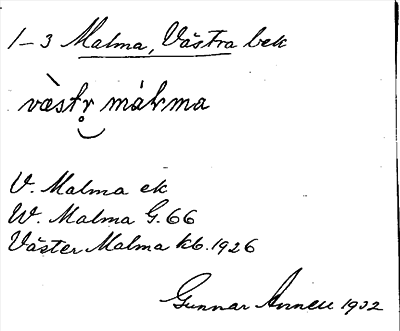 1-3 Malma, Västra bek
væ̀str̥ màlma
V. Malma ek
W. Malma G. 66
Väster Malma kb. 1926
Gunnar Annell 1932